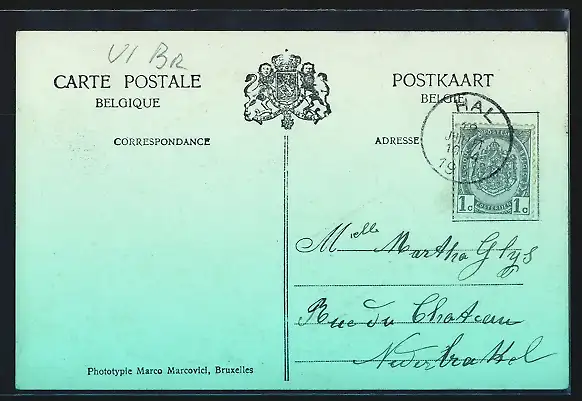 VI BR
CARTE POSTALE
BELGIQUE
POSTKAART
BELGIE
CORRESPONDANCE
ADRESSE
HAL
19
1c 1c
POSTERIJEN
Mlle Martha Glys
Rue du Chateau
Nederbrakel
Phototypie Marco Marcovici, Bruxelles